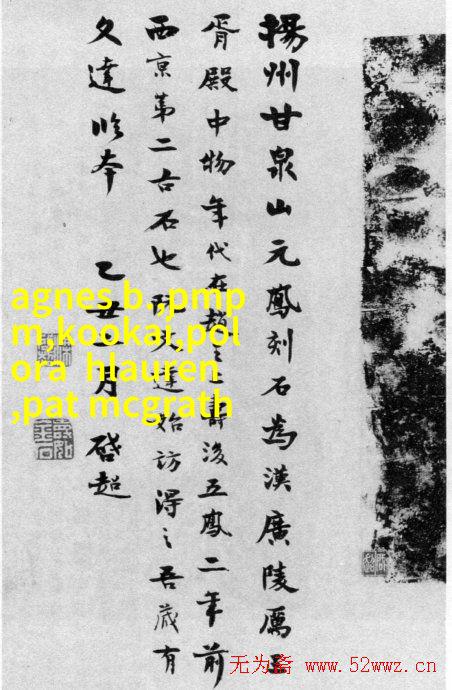 揚州甘泉山元鳳刻石為漢廣陵厲王
胥殿中物年代在趙上壽後五鳳二年前
西京第二古石也阮文達始訪得之吾藏有
文達本 乙丑二月 啓超
agnes b.,,pmp
m,kookai,pol
ora hlauren
,pat mcgrath
无为斋 www.52wwz.cn